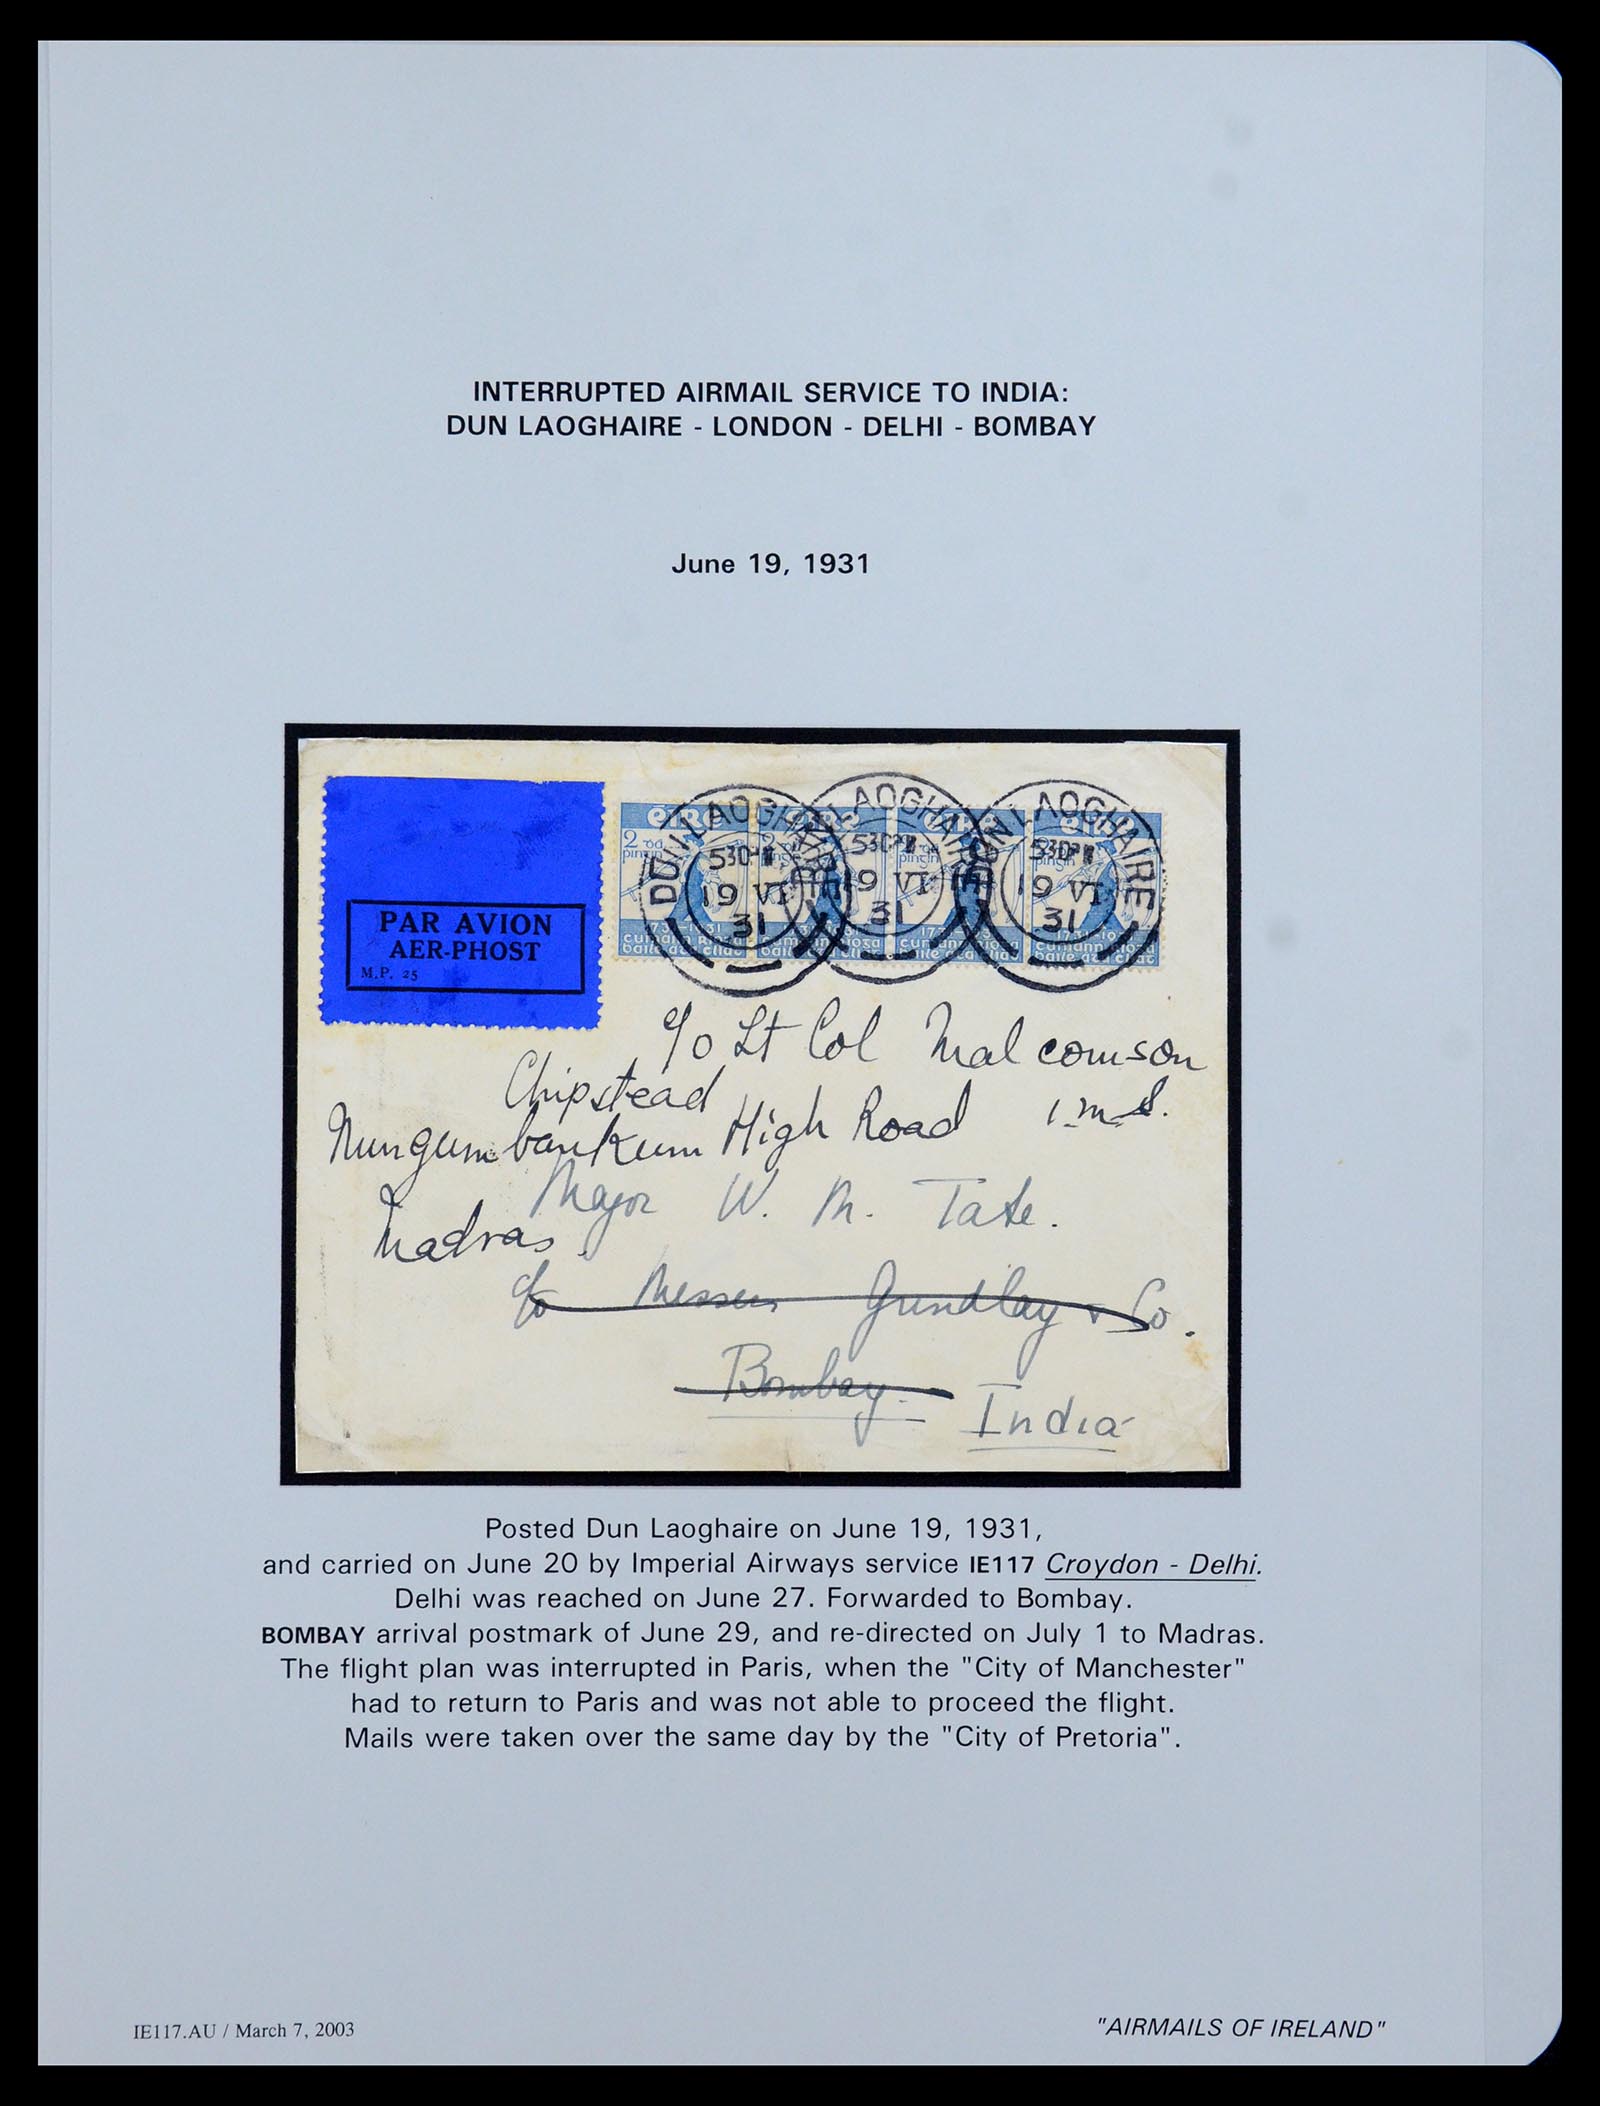 INTERRUPTED AIRMAIL SERVICE TO INDIA:
DUN LAOGHAIRE - LONDON - DELHI - BOMBAY
June 19, 1931
PAR AVION
AER-PHOST
M.P. 25
éire éire éire éire
2 pingin
DUN LAOGHAIRE
530PM
19 VI
31
LAOGHAIRE
530PM
19 VI
31
DUN LAOGHAIRE
530PM
19 VI
31
c/o Lt Col Malcomson
Chipstead I.M.S.
Nungumbankum High Road
Major W. M. Tate.
Madras.
c/o Messrs Grindlay & Co.
Bombay.
India
Posted Dun Laoghaire on June 19, 1931,
and carried on June 20 by Imperial Airways service IE117 Croydon - Delhi.
Delhi was reached on June 27. Forwarded to Bombay.
BOMBAY arrival postmark of June 29, and re-directed on July 1 to Madras.
The flight plan was interrupted in Paris, when the "City of Manchester"
had to return to Paris and was not able to proceed the flight.
Mails were taken over the same day by the "City of Pretoria".
IE117.AU / March 7, 2003
"AIRMAILS OF IRELAND"